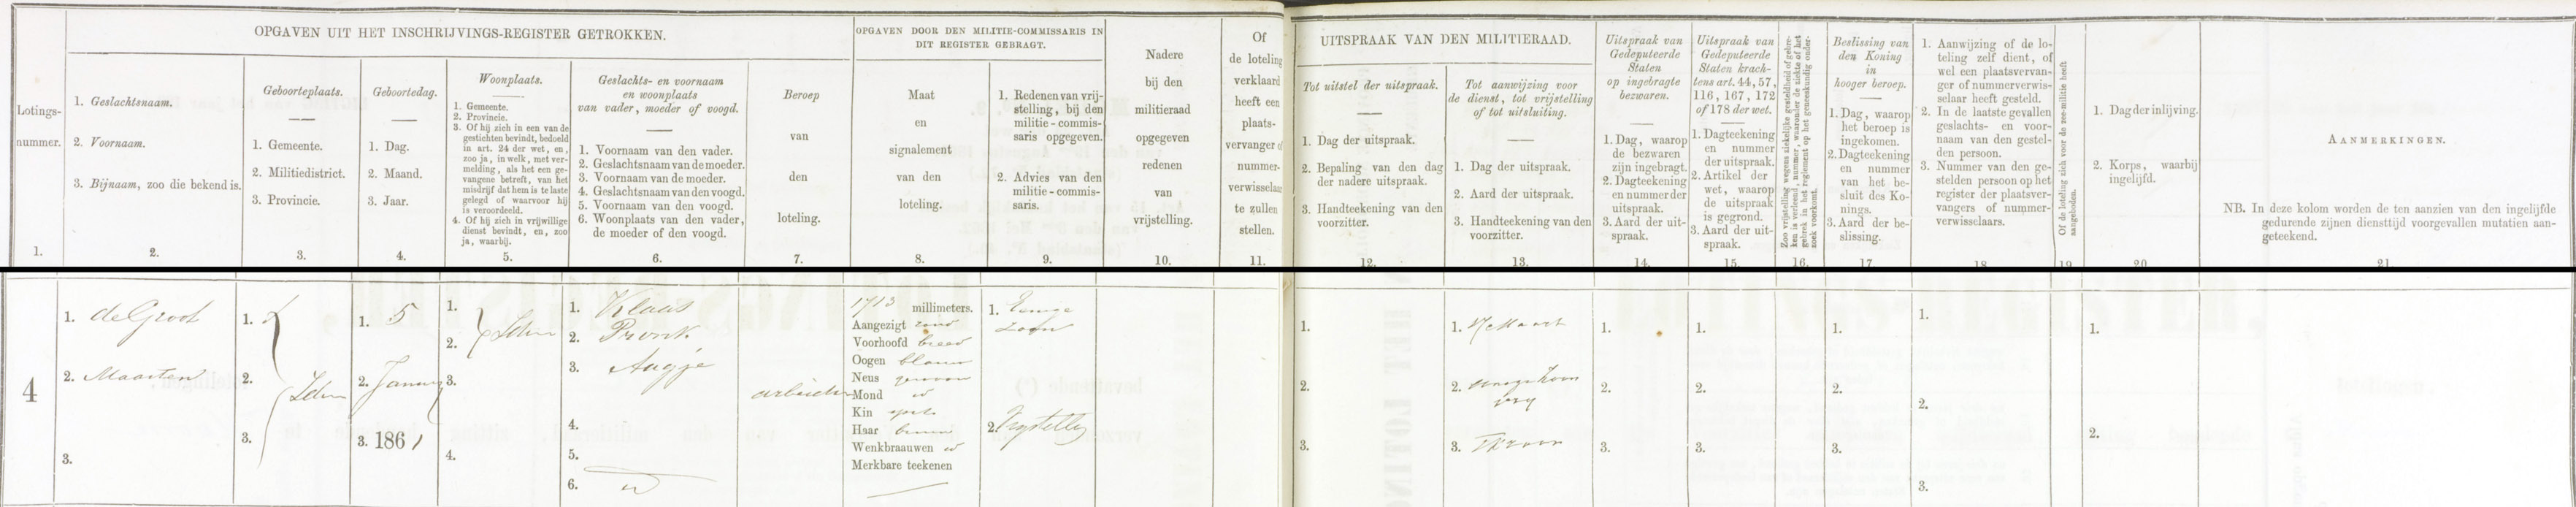 OPGAVEN UIT HET INSCHRIJVINGS-REGISTER GETROKKEN.
Lotings-
nummer.
1.
1. Geslachtsnaam.
2. Voornaam.
3. Bijnaam, zoo die bekend is.
2.
Geboorteplaats.
1. Gemeente.
2. Militiedistrict.
3. Provincie.
3.
Geboortedag.
1. Dag.
2. Maand.
3. Jaar.
4.
Woonplaats.
1. Gemeente.
2. Provincie.
3. Of hij zich in een van de
gestichten bevindt, bedoeld
in art. 24 der wet, en,
zoo ja, in welk, met ver-
melding, als het een ge-
vangene betreft, van het
misdrijf dat hem is te laste
gelegd of waarvoor hij
is veroordeeld.
4. Of hij zich in vrijwillige
dienst bevindt, en, zoo
ja, waarbij.
5.
Geslachts- en voornaam
en woonplaats
van vader, moeder of voogd.
1. Voornaam van den vader.
2. Geslachtsnaam van de moeder.
3. Voornaam van de moeder.
4. Geslachtsnaam van den voogd.
5. Voornaam van den voogd.
6. Woonplaats van den vader,
de moeder of den voogd.
6.
Beroep
van
den
loteling.
7.
OPGAVEN DOOR DEN MILITIE-COMMISSARIS IN
DIT REGISTER GEBRAGT.
Maat
en
signalement
van den
loteling.
8.
1. Redenen van vrij-
stelling, bij den
militie-commis-
saris opgegeven.
2. Advies van den
militie-commis-
saris.
9.
Nadere
bij den
militieraad
opgegeven
redenen
van
vrijstelling.
10.
Of
de loteling
verklaard
heeft een
plaats-
vervanger of
nummer-
verwisselaar
te zullen
stellen.
11.
UITSPRAAK VAN DEN MILITIERAAD.
Tot uitstel der uitspraak.
1. Dag der uitspraak.
2. Bepaling van den dag
der nadere uitspraak.
3. Handteekening van den
voorzitter.
12.
Tot aanwijzing voor
de dienst, tot vrijstelling
of tot uitsluiting.
1. Dag der uitspraak.
2. Aard der uitspraak.
3. Handteekening van den
voorzitter.
13.
Uitspraak van
Gedeputeerde
Staten
op ingebragte
bezwaren.
1. Dag, waarop
de bezwaren
zijn ingebragt.
2. Dagteekening
en nummer der
uitspraak.
3. Aard der uit-
spraak.
14.
Uitspraak van
Gedeputeerde
Staten krach-
tens art. 44, 57,
116, 167, 172
of 178 der wet.
1. Dagteekening
en nummer
der uitspraak.
2. Artikel der
wet, waarop
de uitspraak
is gegrond.
3. Aard der uit-
spraak.
15.
Zoo vrijstelling wegens ziekelijke gesteldheid of gebre-
ken is verleend, nummer, waaronder de ziekte of het
gebrek in het reglement op het geneeskundig onder-
zoek voorkomt.
16.
Beslissing van
den Koning
in
hooger beroep.
1. Dag, waarop
het beroep is
ingekomen.
2. Dagteekening
en nummer
van het be-
sluit des Ko-
nings.
3. Aard der be-
slissing.
17
1. Aanwijzing of de lo-
teling zelf dient, of
wel een plaatsvervan-
ger of nummerverwis-
selaar heeft gesteld.
2. In de laatste gevallen
geslachts- en voor-
naam van den gestel-
den persoon.
3. Nummer van den ge-
stelden persoon op het
register der plaatsver-
vangers of nummer-
verwisselaars.
18
Of de loteling zich voor de zee-militie heeft
aangeboden.
19
1. Dag der inlijving.
2. Korps, waarbij
ingelijfd.
20
AANMERKINGEN.
NB. In deze kolom worden de ten aanzien van den ingelijfde
gedurende zijnen diensttijd voorgevallen mutatien aan-
geteekend.
21
4
1. de Groot
2. Maarten
3.
1.
2. Idem
3.
1. 5
2. January
3. 1861
1.
2. Idem
3.
4.
1. Klaas
2. Pronk
3. Aagje
4.
5.
6. id
arbeider
1713 millimeters.
Aangezigt rond
Voorhoofd breed
Oogen blauw
Neus gewoon
Mond id
Kin spits
Haar bruin
Wenkbraauwen id
Merkbare teekenen
1. Eenige
zoon
2. Vrystelling
1.
2.
3.
1. Maart
2.
3.
1.
2.
3.
1.
2.
3.
1.
2.
3.
1.
2.
3.
1.
2.